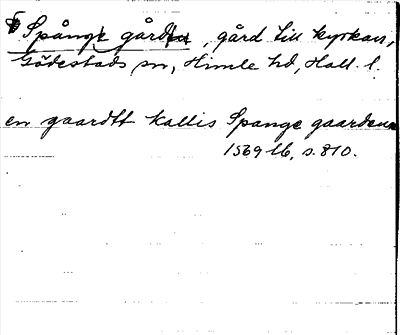 Spånge gården, gård till kyrkan,
Gödestads sn, Himle hd, Hall. l.
en gaardtt kallis Spange gaarden
1569 Lb, s. 810.